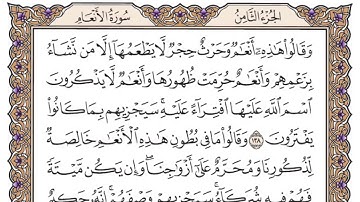 الجزء الثامن
سورة الأنعام
وَقَالُوا۟ هَـٰذِهِۦٓ أَنْعَـٰمٌ وَحَرْثٌ حِجْرٌ لَّا يَطْعَمُهَآ إِلَّا مَن نَّشَآءُ
بِزَعْمِهِمْ وَأَنْعَـٰمٌ حُرِّمَتْ ظُهُورُهَا وَأَنْعَـٰمٌ لَّا يَذْكُرُونَ
ٱسْمَ ٱللَّهِ عَلَيْهَا ٱفْتِرَآءً عَلَيْهِ ۚ سَيَجْزِيهِم بِمَا كَانُوا۟
يَفْتَرُونَ ١٣٨ وَقَالُوا۟ مَا فِى بُطُونِ هَـٰذِهِ ٱلْأَنْعَـٰمِ خَالِصَةٌ
لِّذُكُورِنَا وَمُحَرَّمٌ عَلَىٰٓ أَزْوَٰجِنَا ۖ وَإِن يَكُن مَّيْتَةً
فَهُمْ فِيهِ شُرَكَآءُ ۚ سَيَجْزِيهِمْ وَصْفَهُمْ ۚ إِنَّهُۥ حَكِيمٌ